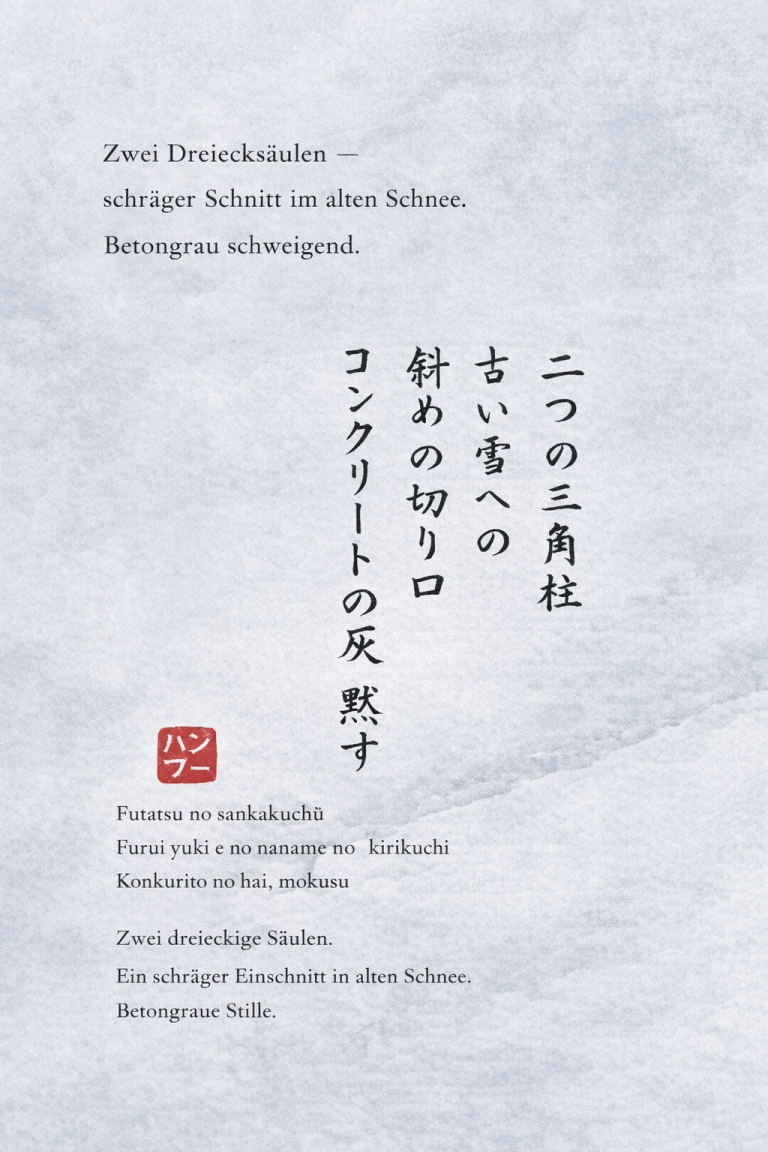 Zwei Dreiecksäulen —
schräger Schnitt im alten Schnee.
Betongrau schweigend.
二つの三角柱
古い雪への
斜めの切り口
コンクリートの灰 黙す
ハン
フー
Futatsu no sankakuchü
Furui yuki e no naname no kirikuchi
Konkurito no hai, mokusu
Zwei dreieckige Säulen.
Ein schräger Einschnitt in alten Schnee.
Betongraue Stille.